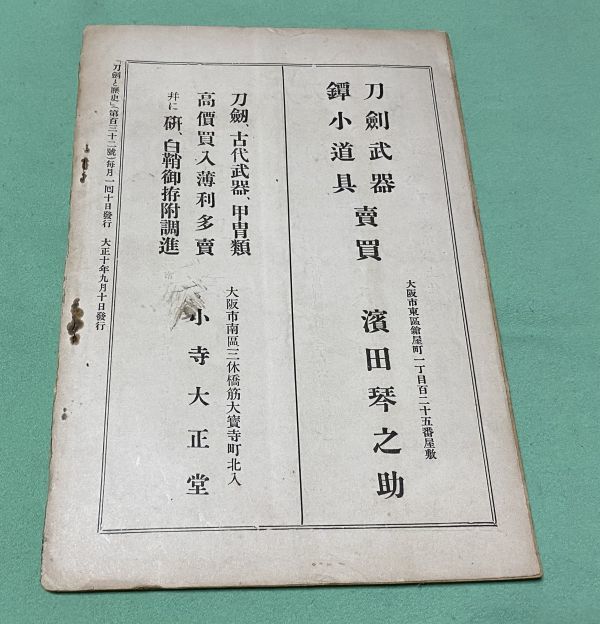 刀劍武器
鐔小道具
賣買
大阪市東區鎗屋町一丁目百二十五番屋敷
濱田琴之助
刀劔、古代武器、甲冑類
高價買入薄利多賣
幷に 硏、白鞘御拵附調進
大阪市南區三休橋筋大寳寺町北入
小寺大正堂
『刀劔と歷史』第百三十二號)每月一回十日發行 大正十年九月十日發行